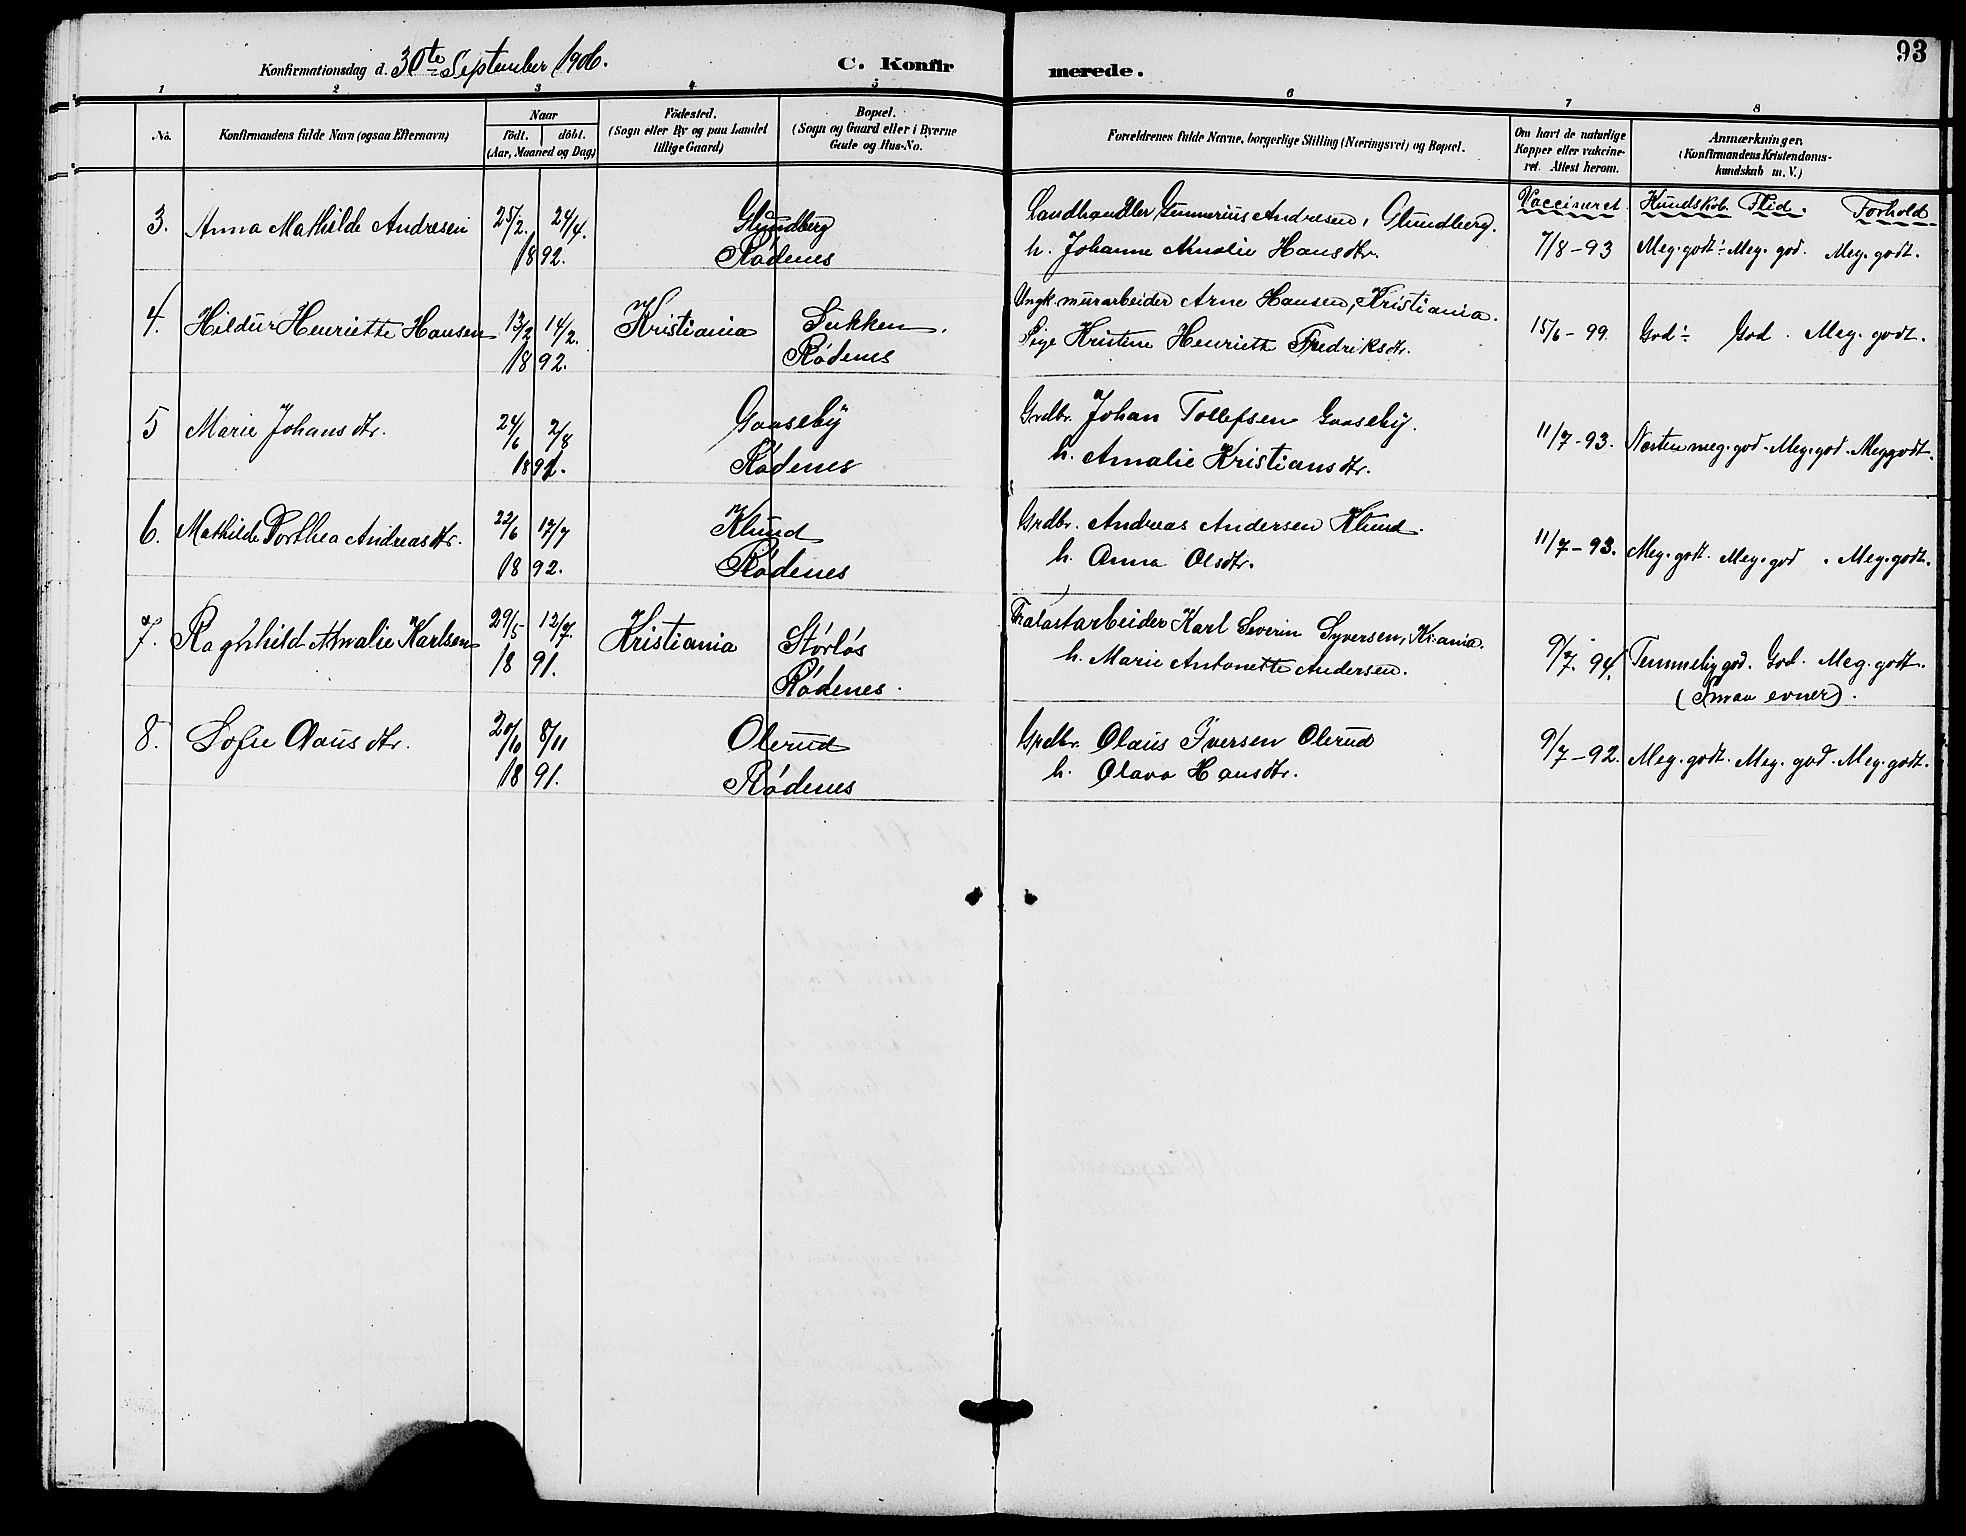 93
Konfirmationsdag d. 30te September 1906.
C. Konfirmerede.
1 2 3 4 5 6 7 8
No.
Konfirmandens fulde Navn (ogsaa Efternavn)
Naar
født. døbt.
(Aar, Maaned og Dag)
Fødested.
(Sogn eller By og paa Landet
tillige Gaard)
Bopæl.
(Sogn og Gaard eller i Byerne
Gade og Hus-No.
Forældrenes fulde Navne, borgerlige Stilling (Næringsvei) og Bopæl.
Om havt de naturlige
Kopper eller vakcine-
ret. Attest herom.
Anmærkninger.
(Konfirmandens Kristendoms-
kundskab m. V.)
Vaccineret Kundskab. Flid. Forhold
3. Anna Mathilde Andresen 25/2. 24/4. Glundberg Landhandler Gunnerius Andresen, Glundberg.
1892. Rødenes h. Johanne Amalie Hansdtr. 7/8 - 93 Meg. godt ÷ Meg. god. Meg. godt.
4. Hildur Henriette Hansen 13/2 14/2. Kristiania Sukken. Ungk. murarbeider Arne Hansen, Kristiania.
1892. Rødenes Pige Kristine Henriette Fredriksdtr. 15/6 - 99. God ÷ God. Meg. godt.
5 Marie Johansdtr. 24/6 2/8 Gaaseby Grdbr. Johan Tollefsen Gaaseby.
1891. Rødenes h. Amalie Kristiansdtr. 11/7 - 93. Næsten meg. god. Meg. god. Meg godt.
6. Mathilde Dorthea Andreasdtr. 22/6 17/7 Klund Grdbr. Andreas Andersen Klund.
1892. Rødenes h. Anna Olsdtr. 11/7 - 93. Meg. godt. Meg. god. Meg. godt.
7. Raghhild Amalie Karlsen 29/5 12/7. Kristiania Størløs Karl Severin Syversen, Kr.ania.
1891. Rødenes. h. Marie Antonette Andersen. 9/7. 94. Temmelig god. God. Meg. godt.
(Smaa evner).
8. Sofie Olausdtr. 20/10 8/11 Olerud Grdbr. Olaus Iversen Olerud
1891. Rødenes h. Olava Hansdtr. 9/7 - 92. Meg. godt. Meg. god. Meg. godt.